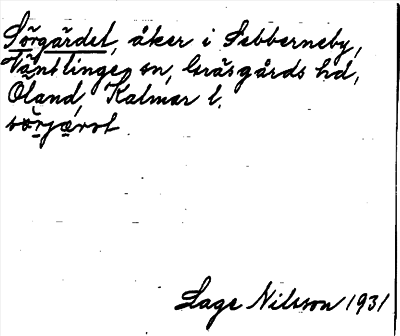 Sörgärdet, åker i Sebberneby,
Väntlinge sn, Gräsgårds hd,
Öland, Kalmar l.
Lage Nilsson 1931